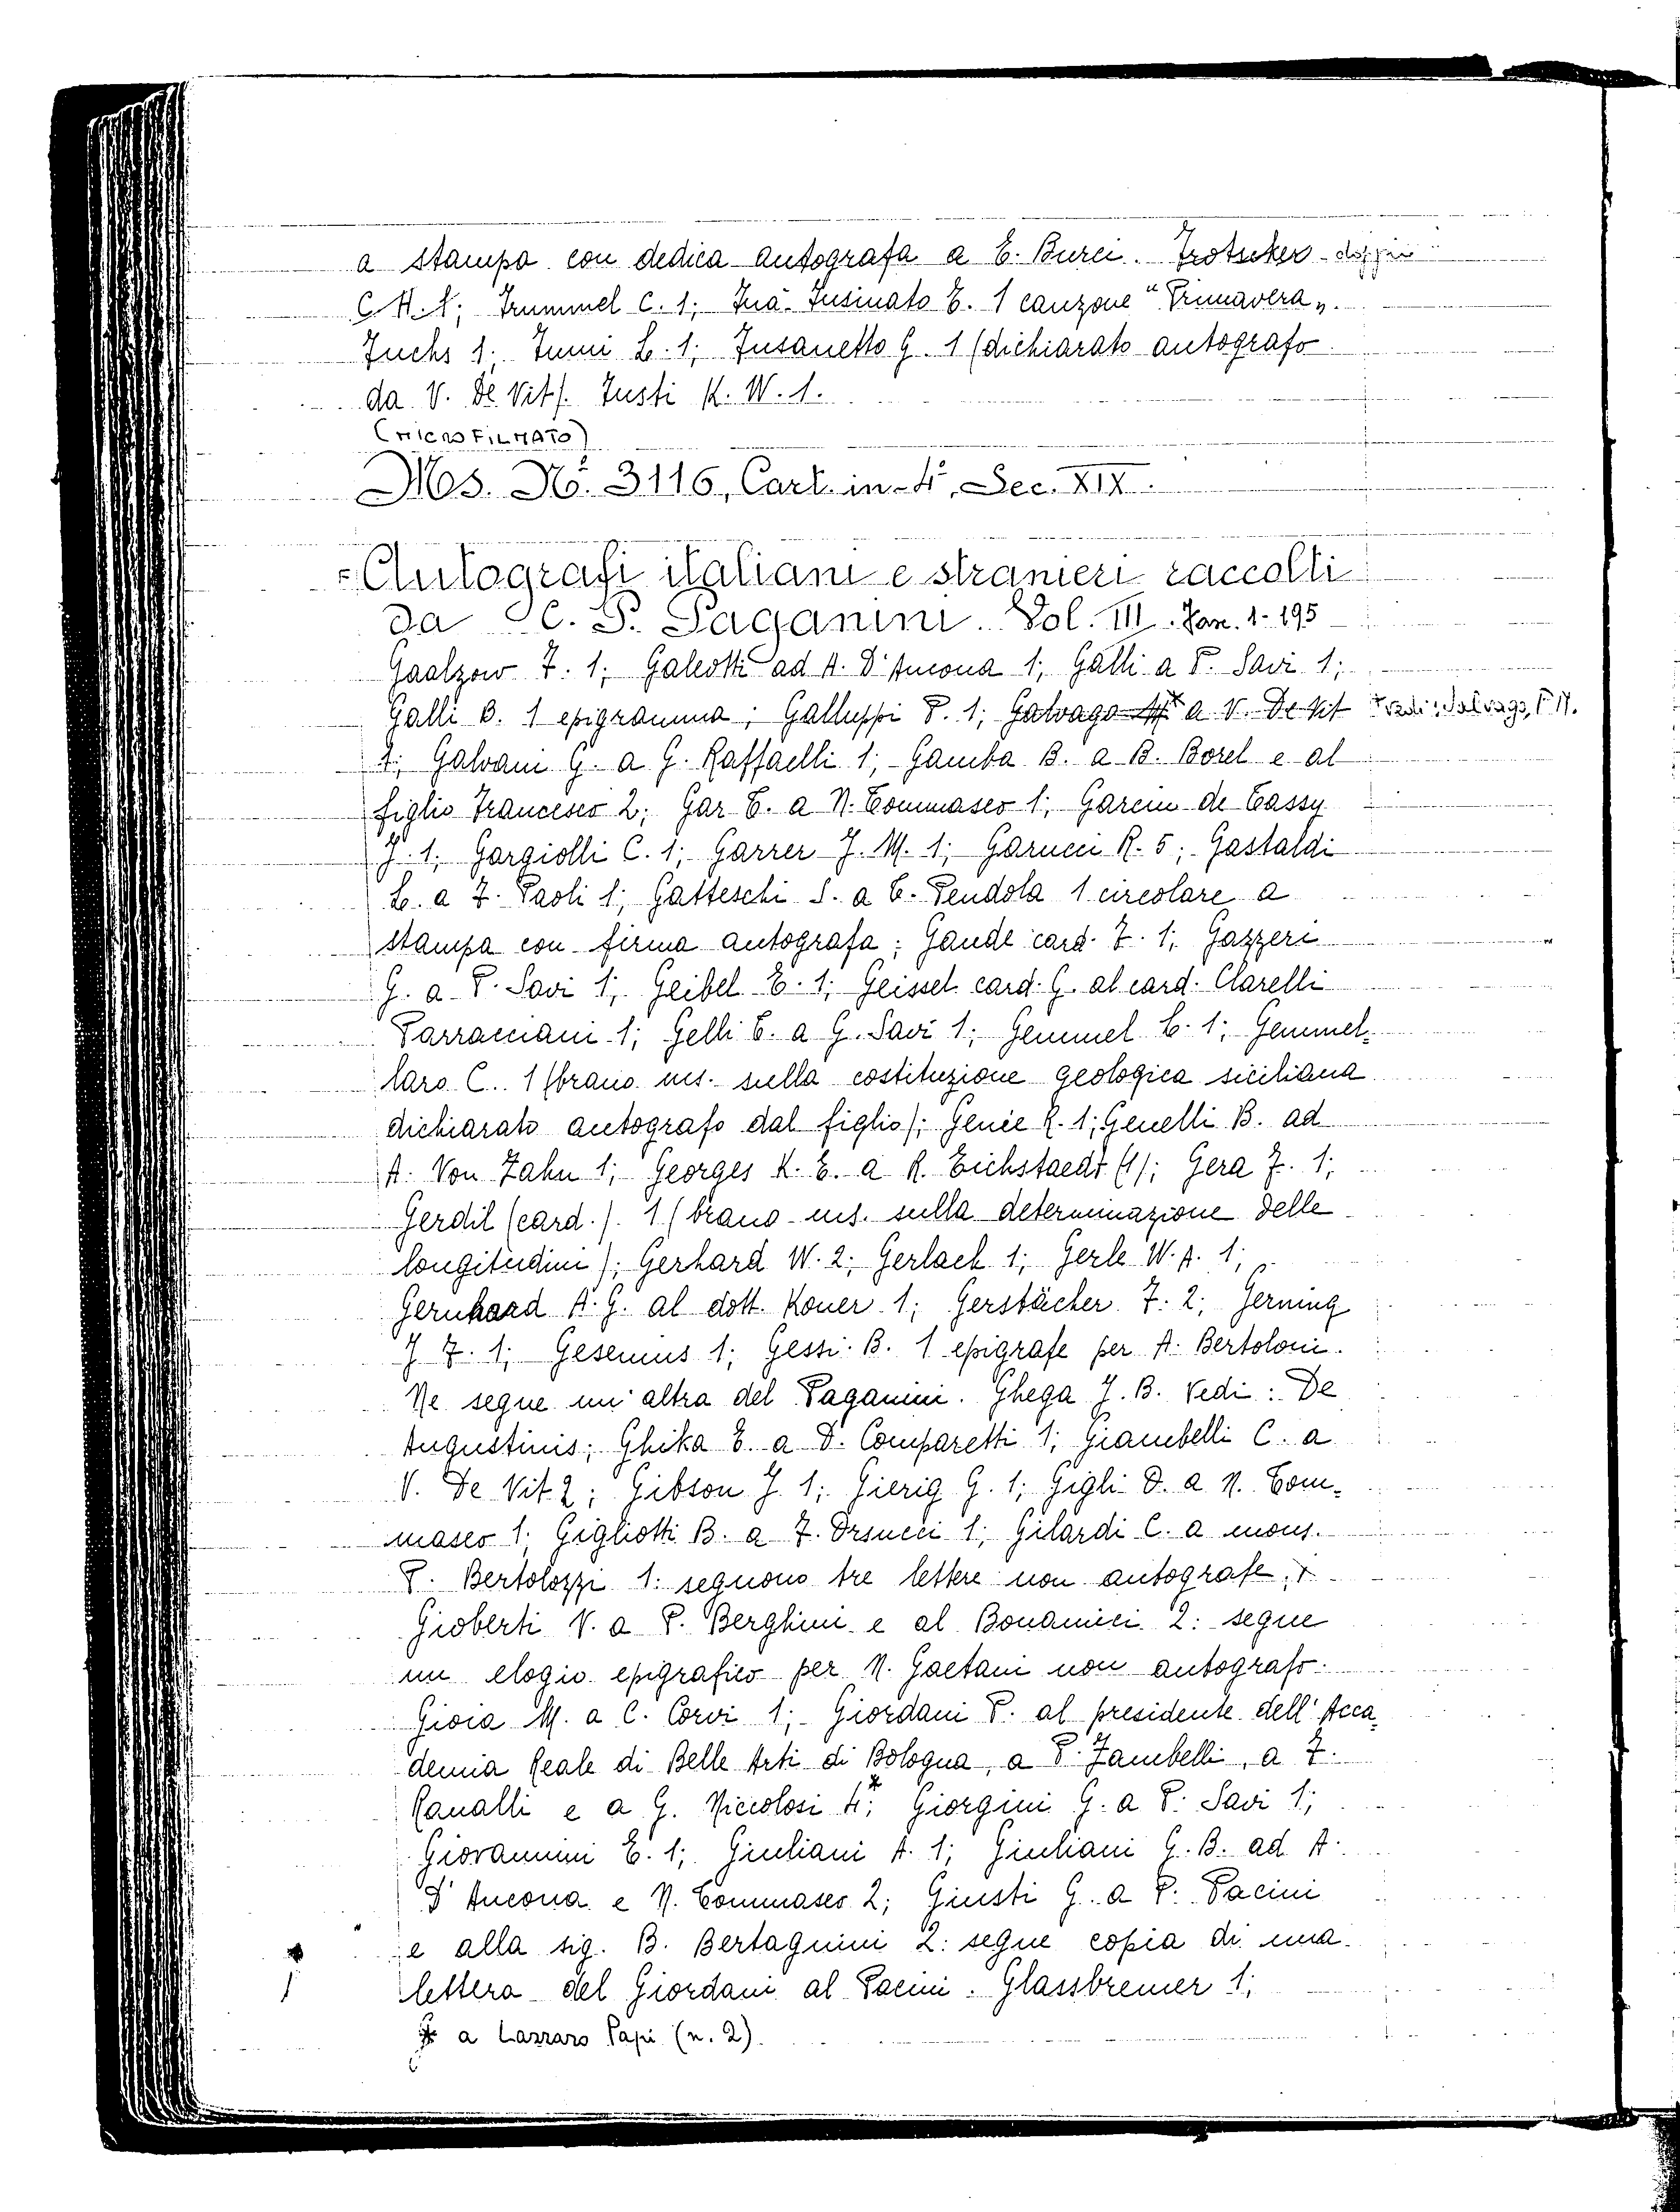 a stampa con dedica autografa a E. Burci. Frotscher
C. H. 1; Frummel C. 1; Fuà-Fusinato E. 1 canzone "Primavera".
Fuchs 1; Fumi L. 1; Fusanetto G. 1 (dichiarato autografo
da V. De Vit). Fusti K. W. 1.
(MICROFILMATO)
Ms. No. 3116, Cart. in-4°, Sec. XIX.
Autografi italiani e stranieri raccolti
da C. P. Paganini. Vol. III. 1-195
Gaalzow F. 1; Galeotti ad A. D'Ancona 1; Galli a P. Savi 1;
Galli B. 1 epigramma; Galluppi P. 1; Galvago M. a V. De Vit Vedi: Salvago, P. M.
1; Galvani G. a G. Raffaelli 1; Gamba B. a B. Borel e al
figlio Francesco 2; Gar T. a N. Tommaseo 1; Garcin de Tassy
J. 1; Gargiolli C. 1; Garrer J. M. 1; Garucci R. 5; Gastaldi
L. a F. Paoli 1; Gatteschi S. a T. Pendola 1 circolare a
stampa con firma autografa; Gaude card. F. 1; Gazzeri
G. a P. Savi 1; Geibel E. 1; Geissel card. G. al card. Clarelli
Parracciani 1; Gelli T. a G. Savi 1; Gemmel L. 1; Gemmel-
laro C. 1 (brano ms. sulla costituzione geologica siciliana
dichiarato autografo dal figlio); Genée R. 1; Genelli B. ad
A. Von Zahn 1; Georges K. E. a R. Eichstaedt (1); Gera F. 1;
Gerdil (card.). 1 (brano ms. sulla determinazione delle
longitudini); Gerhard W. 2; Gerlach 1; Gerle W. A. 1;
Gernhard A. G. al dott. Koner 1; Gerstächer F. 2; Gerning
J F. 1; Gesenius 1; Gessi B. 1 epigrafe per A. Bertoloni.
Ne segue un'altra del Paganini. Ghega J. B. Vedi: De
Augustinis; Ghika E. a D. Comparetti 1; Giambelli C. a
V. De Vit 2; Gibson J. 1; Gierig G. 1; Gigli O. a N. Tom-
maseo 1; Gigliotti B. a F. Orsucci 1; Gilardi C. a mons.
P. Bertolozzi 1: seguono tre lettere non autografe;
Gioberti V. a P. Berghini e al Bonamici 2: segue
un elogio epigrafico per N. Gaetani non autografo.
Gioia M. a C. Corvi 1; Giordani P. al presidente dell'Acca-
demia Reale di Belle Arti di Bologna, a P. Zambelli, a F.
Ranalli e a G. Niccolosi 4*; Giorgini G. a P. Savi 1;
Giovannini E. 1; Giuliani A. 1; Giuliani G. B. ad A.
D'Ancona e N. Tommaseo 2; Giusti G. a P. Pacini
e alla sig. B. Bertagnini 2: segue copia di una
lettera del Giordani al Pacini. Glassbrenner 1;
* a Lazzaro Papi (n. 2).